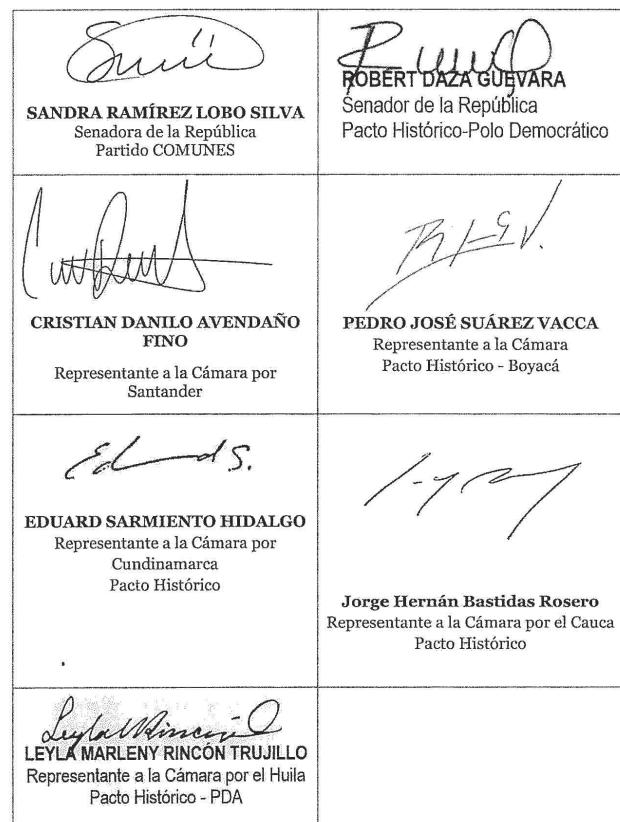 SANDRA RAMÍREZ LOBO SILVA
Senadora de la República
Partido COMUNES
ROBERT DAZA GUEVARA
Senador de la República
Pacto Histórico-Polo Democrático
CRISTIAN DANILO AVENDAÑO
FINO
Representante a la Cámara por
Santander
PEDRO JOSÉ SUÁREZ VACCA
Representante a la Cámara
Pacto Histórico - Boyacá
Eduard S.
EDUARD SARMIENTO HIDALGO
Representante a la Cámara por
Cundinamarca
Pacto Histórico
Jorge Hernán Bastidas Rosero
Representante a la Cámara por el Cauca
Pacto Histórico
Leyla Rincón
LEYLA MARLENY RINCÓN TRUJILLO
Representante a la Cámara por el Huila
Pacto Histórico - PDA